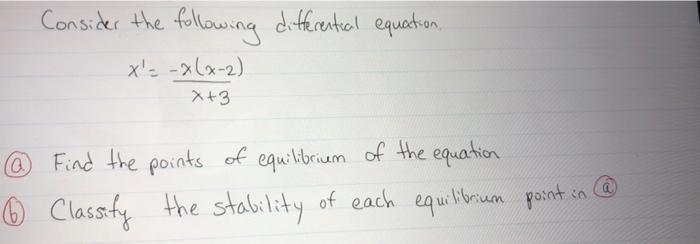 Consider the following differential equation.
x' = -x(x-2)
x+3
(a) Find the points of equilibrium of the equation
(b) Classify the stability of each equilibrium point in (a)